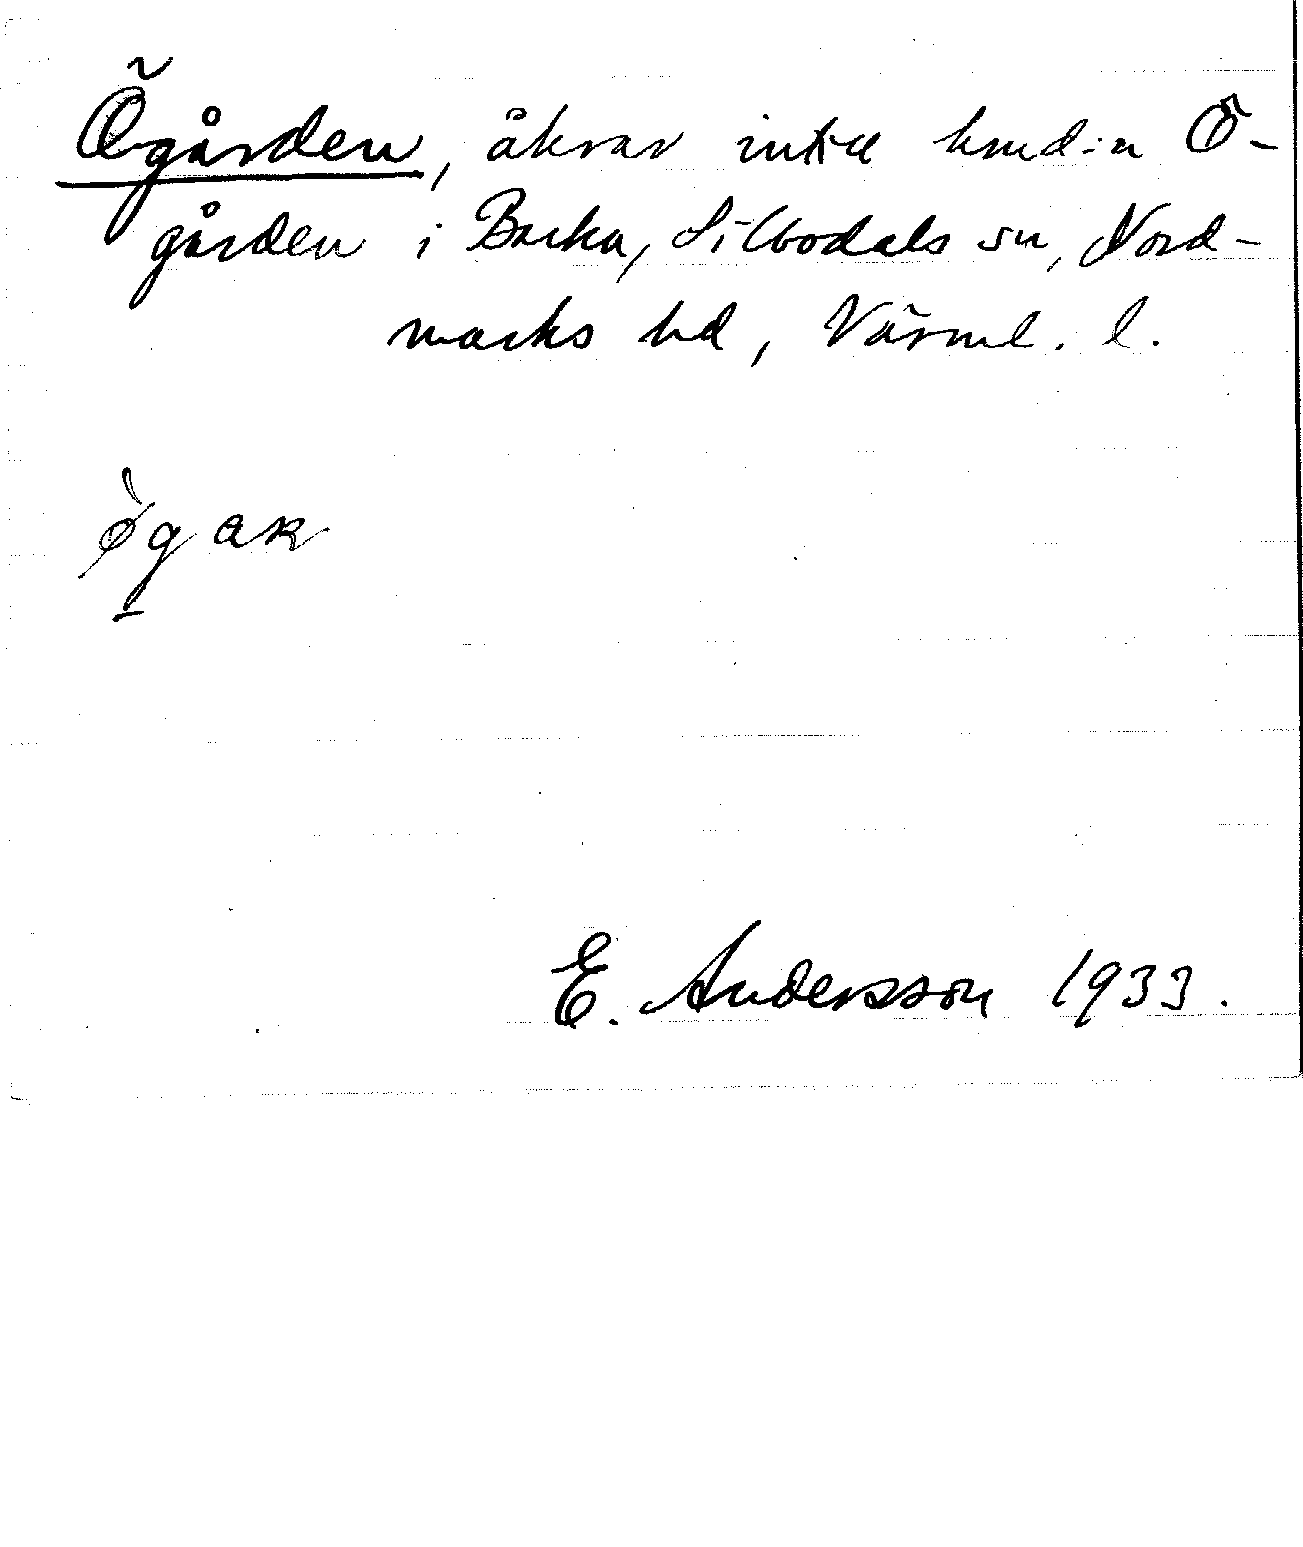 Ögården, åkrar intill hmd:n Ö-
gården i Backa, Silbodals sn, Nord-
marks hd, Värml. l.
ø̀gaṛ
E. Andersson 1933.